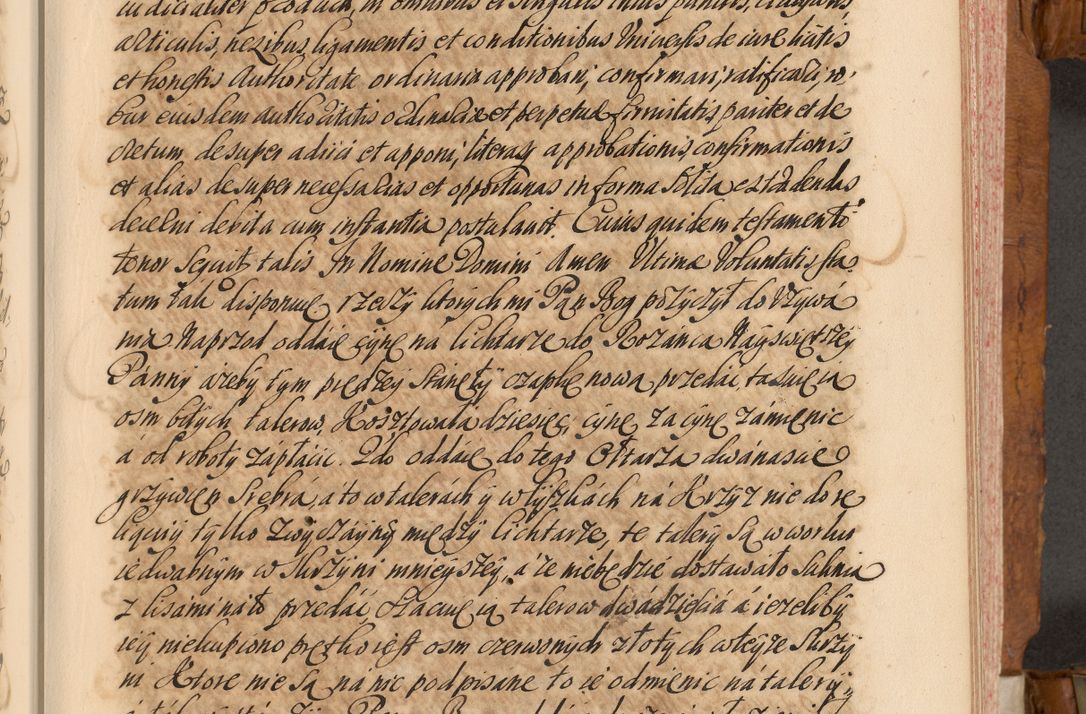 articulis, nexibus, ligamentis et conditionibus Universis de iure licitis
et honestis Authoritate ordinaria approbari, confirmari, ratificari, ro-
bur eiusdem authoritatis ordinariæ et perpetuæ firmitatis pariter et de
cretum desuper adiici et apponi, literasq approbationis, confirmationis
et alias desuper necessarias et opportunas in forma solita extradendas
decerni debita cum instantia postulavit. Cuius quidem testamenti
tenor sequit talis In Nomine Domini Amen Ultimæ Voluntatis sta-
tum tak disponuię rzeczy ktorych mi Pan Bog pozyczył do Uzywá
nia Naprzod oddáie cynę ná lichtarze do Rozánca Náyswiętszey
Pánny ázeby tym prędzey stánęły czapkę nową przedáć ta
osm bitych talerow, Kosztowałá dziesięc, cynę zá cynę zámienic
á od roboty zápłácic. 2do oddáię do tego Ołtarzá dwánascie
grzywien Srebrá, á to w talerách y w łyszkách ná Krzyz nie do re
liquiy tylko zwyczáyny między lichtarze, te talery są w worku
iedwabnym w skrzyni mnieyszey, á ze niebędzie dostawáło suknią
z lisámi przedáć szacuię ią talerow dwádziesciá á iezeliby
iey niekupiono prętko iest osm czerwonych złotych w teyze skrzy
ni Ktore nie są ná nic podpisane to ie odmienic ná talery